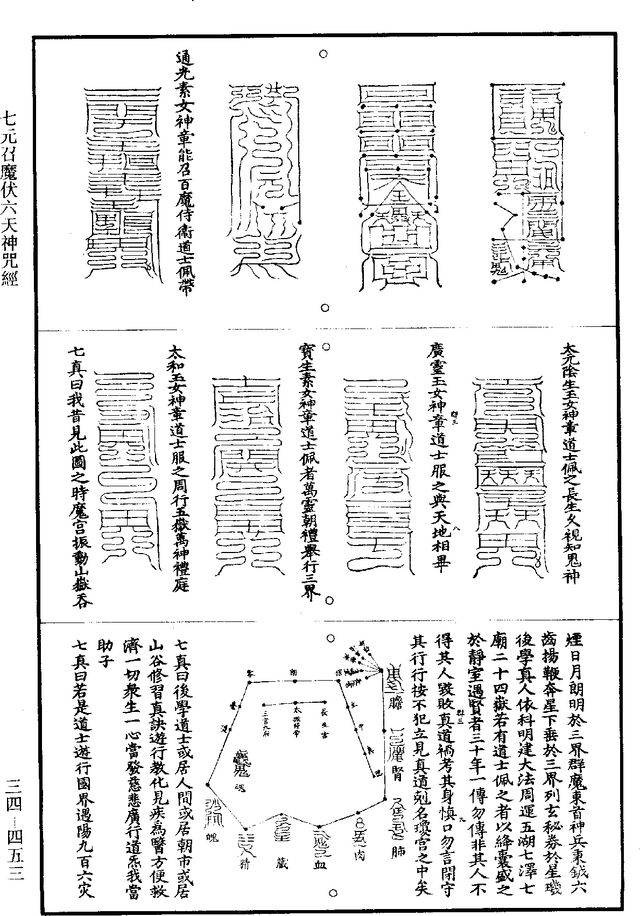 七元召魔伏六天神咒經
三四－四五三
通光素女神章能召百魔侍衛道士佩帶
太元陰生玉女神章道士佩之長生久視知鬼神
廣靈玉女神章道士服之與天地相畢
寶生素女神章道士佩者萬靈朝禮舉行三界
太和玉女神章道士服之周行五嶽萬神禮庭
七真曰我昔見此圖之時魔宮振動山嶽吞
煙日月朗明於三界群魔束首神兵秉鉞六
齒揚鞭奔星下垂於三界列玄秘券於星璣
後學真人依科明建大法周運五湖七澤七
廟二十四嶽若有道士佩之者以絳囊盛之
於靜室遇賢者三十年一傳勿傳非其人不
得其人毀敗真道禍考其身慎口勿言閉守
其行行按不犯立見真道剋名瓊宮之中矣
膽
腎
肺
肉
血
藏
精
魄
魄
長生宮
七真曰後學道士或居人間或居朝市或居
山谷修習真訣遊行教化見疾為醫方便救
濟一切衆生一心當發慈悲廣行道炁我當
助子
七真曰若是道士遊行國界遇陽九百六灾